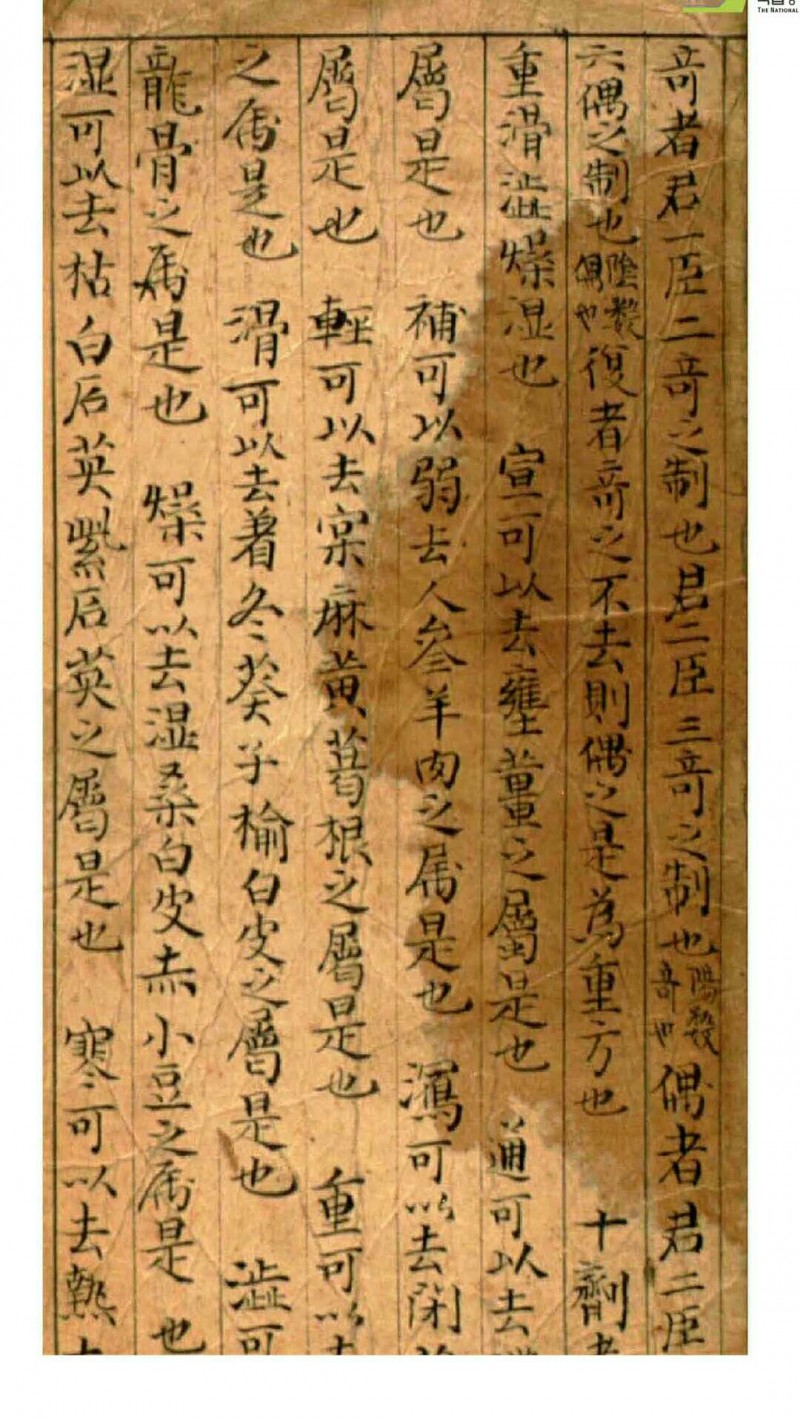 奇者君一臣二奇之制也君二臣三奇之制也陽數奇也偶者君二臣
六偶之制也陰數偶也復者奇之不去則偶之是為重方也 十劑者
重滑澁燥湿也 宣可以去壅薑之屬是也 通可以去
屬是也 補可以弱去人參羊肉之属是也 瀉可以去閉
屬是也 輕可以去麻黄葛根之屬是也 重可以去
之属是也 滑可以去着冬葵子榆白皮之屬是也 澁可
龍骨之属是也 燥可以去湿桑白皮赤小豆之属是也
湿可以去枯白石英紫石英之屬是也 寒可以去熱
THE NATIONAL